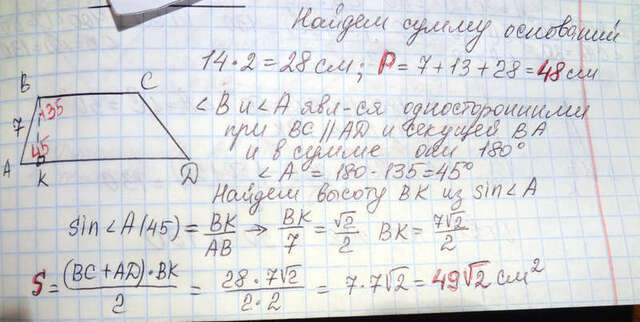 Найдем сумму оснований
14·2=28см; P=7+13+28=48см
B
C
135
7
45
A
K
D
∠B и ∠A явл-ся односторонними
при BC∥AD и секущей BA
и в сумме они 180°
∠A = 180-135=45°
Найдем высоту BK из sin∠A
sin∠A(45) = BK/AB → BK/7 = √2/2 BK = 7√2/2
S = (BC+AD)·BK/2 = 28·7√2/2·2 = 7·7√2 = 49√2 см²